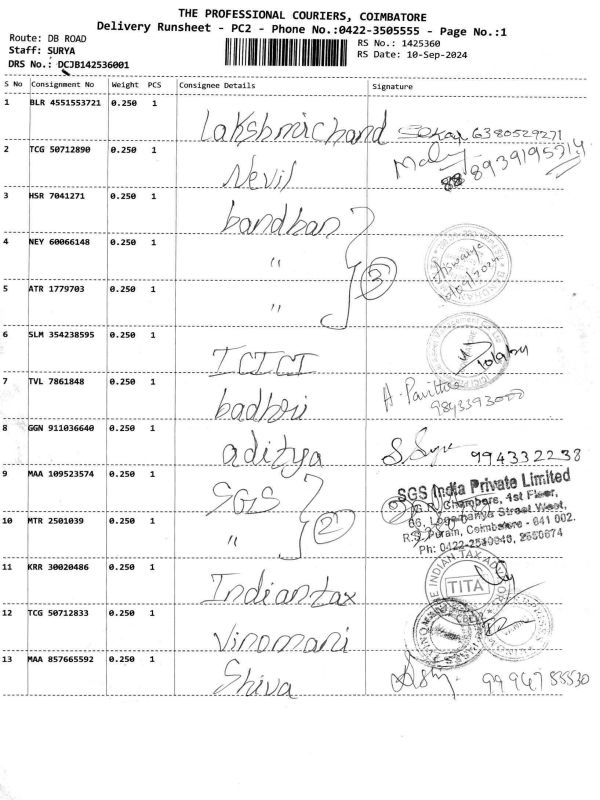 THE PROFESSIONAL COURIERS, COIMBATORE
Delivery Runsheet - PC2 - Phone No.:0422-3505555 - Page No.:1
Route: DB ROAD
Staff: SURYA
DRS No.: DCJB142536001
RS No.: 1425360
RS Date: 10-Sep-2024
S No Consignment No Weight PCS Consignee Details Signature
1 BLR 4551553721 0.250 1 Lakshmichand 6380529271
2 TCG 50712890 0.250 1 Nevil
3 HSR 7041271 0.250 1 bandhan
4 NEY 60066148 0.250 1 " 3
5 ATR 1779703 0.250 1 "
6 SLM 354238595 0.250 1 ICICI 10/9/24
7 TVL 7861848 0.250 1 badhri A. Pavithra
9843393000
8 GGN 911036640 0.250 1 aditya 994332238
9 MAA 109523574 0.250 1 SGS
SGS India Private Limited
G.R. Chambers, 1st Floor,
66, Street West,
R.S. Puram, Coimbatore - 641 002.
10 MTR 2501039 0.250 1 " 2
11 KRR 30020486 0.250 1 Indiantax
TITA
12 TCG 50712833 0.250 1 Vinomani
13 MAA 857665592 0.250 1 Shiva